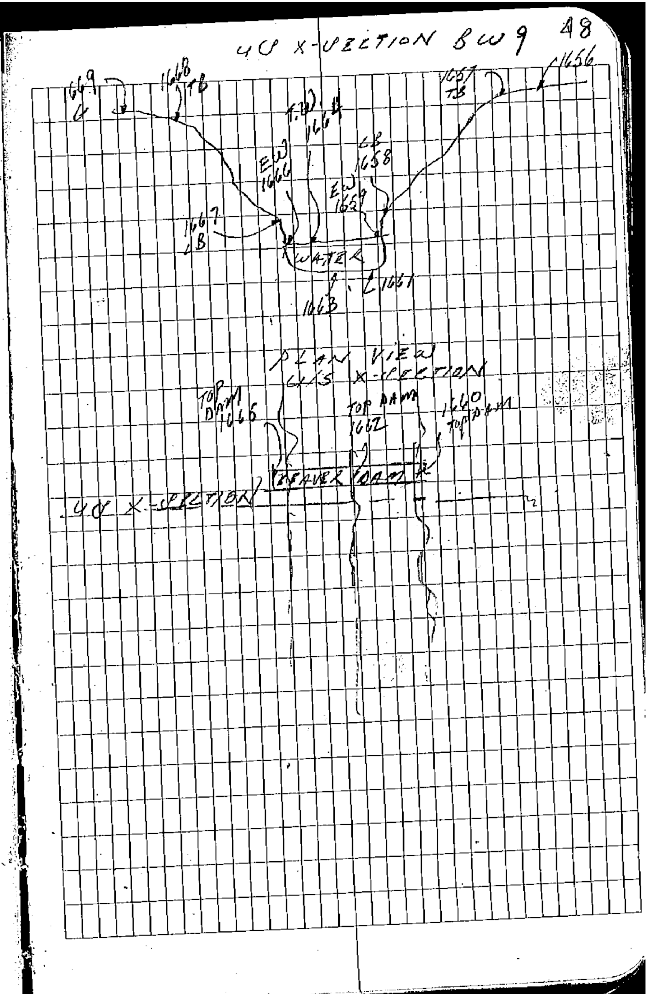 X-SECTION BW 9 48
1669
G
1668
TB
1657
TB
1656
T.W.
1664
EW
1666
LB
1658
EW
1659
1667
LB
WATER
1663
1661
PLAN VIEW
X-SECTION
TOP
DAM
1665
TOP DAM
1662
1660
TOP DAM
BEAVER DAM
X-SECTION